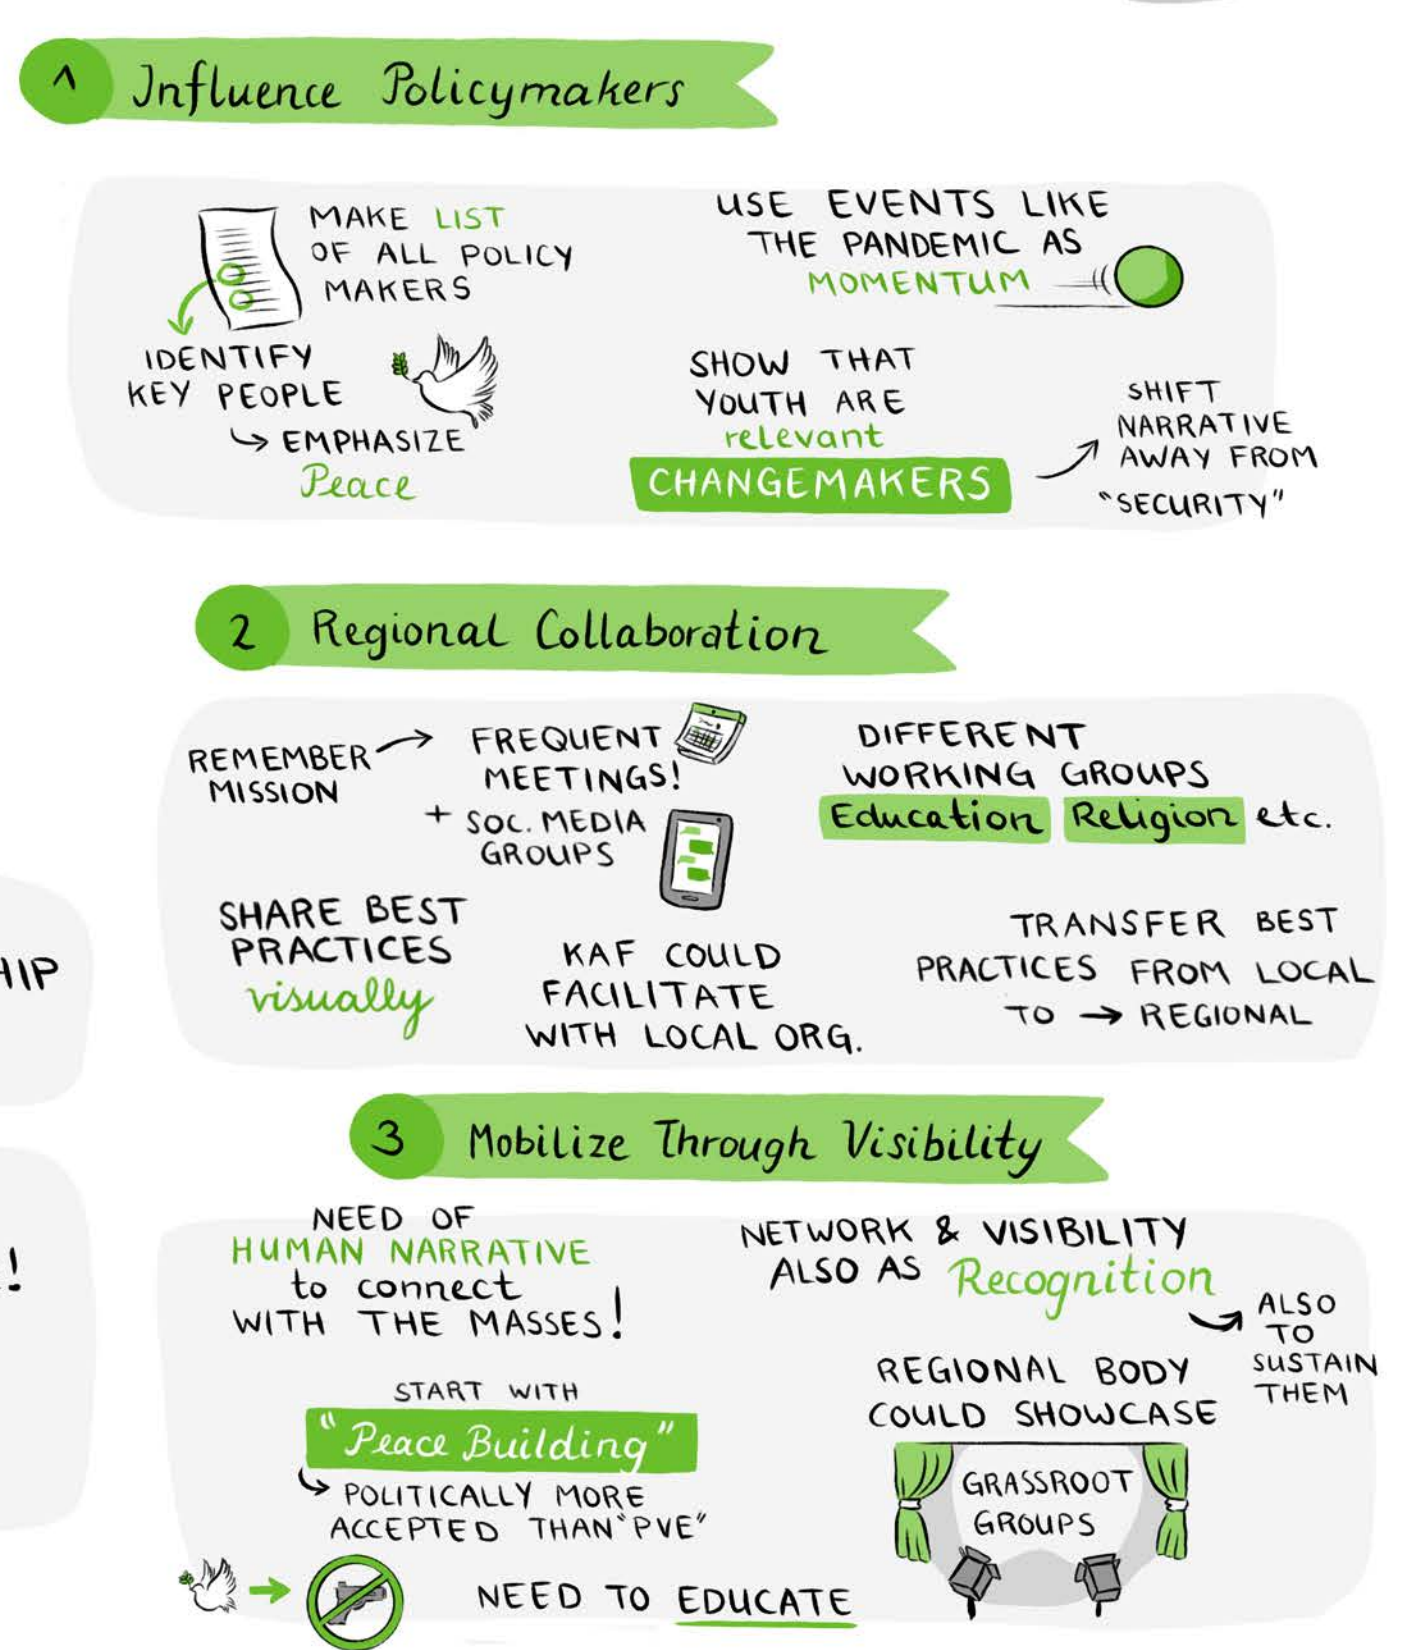 1 Influence Policymakers
MAKE LIST
OF ALL POLICY
MAKERS
IDENTIFY
KEY PEOPLE
EMPHASIZE
Peace
USE EVENTS LIKE
THE PANDEMIC AS
MOMENTUM
SHOW THAT
YOUTH ARE
relevant
CHANGEMAKERS
SHIFT
NARRATIVE
AWAY FROM
"SECURITY"
2 Regional Collaboration
REMEMBER
MISSION
FREQUENT
MEETINGS!
+ SOC. MEDIA
GROUPS
DIFFERENT
WORKING GROUPS
Education Religion etc.
SHARE BEST
PRACTICES
visually
KAF COULD
FACILITATE
WITH LOCAL ORG.
TRANSFER BEST
PRACTICES FROM LOCAL
TO → REGIONAL
HIP
!
3 Mobilize Through Visibility
NEED OF
HUMAN NARRATIVE
to connect
WITH THE MASSES!
START WITH
"Peace Building"
POLITICALLY MORE
ACCEPTED THAN "PVE"
NEED TO EDUCATE
NETWORK & VISIBILITY
ALSO AS Recognition
ALSO
TO
SUSTAIN
THEM
REGIONAL BODY
COULD SHOWCASE
GRASSROOT
GROUPS